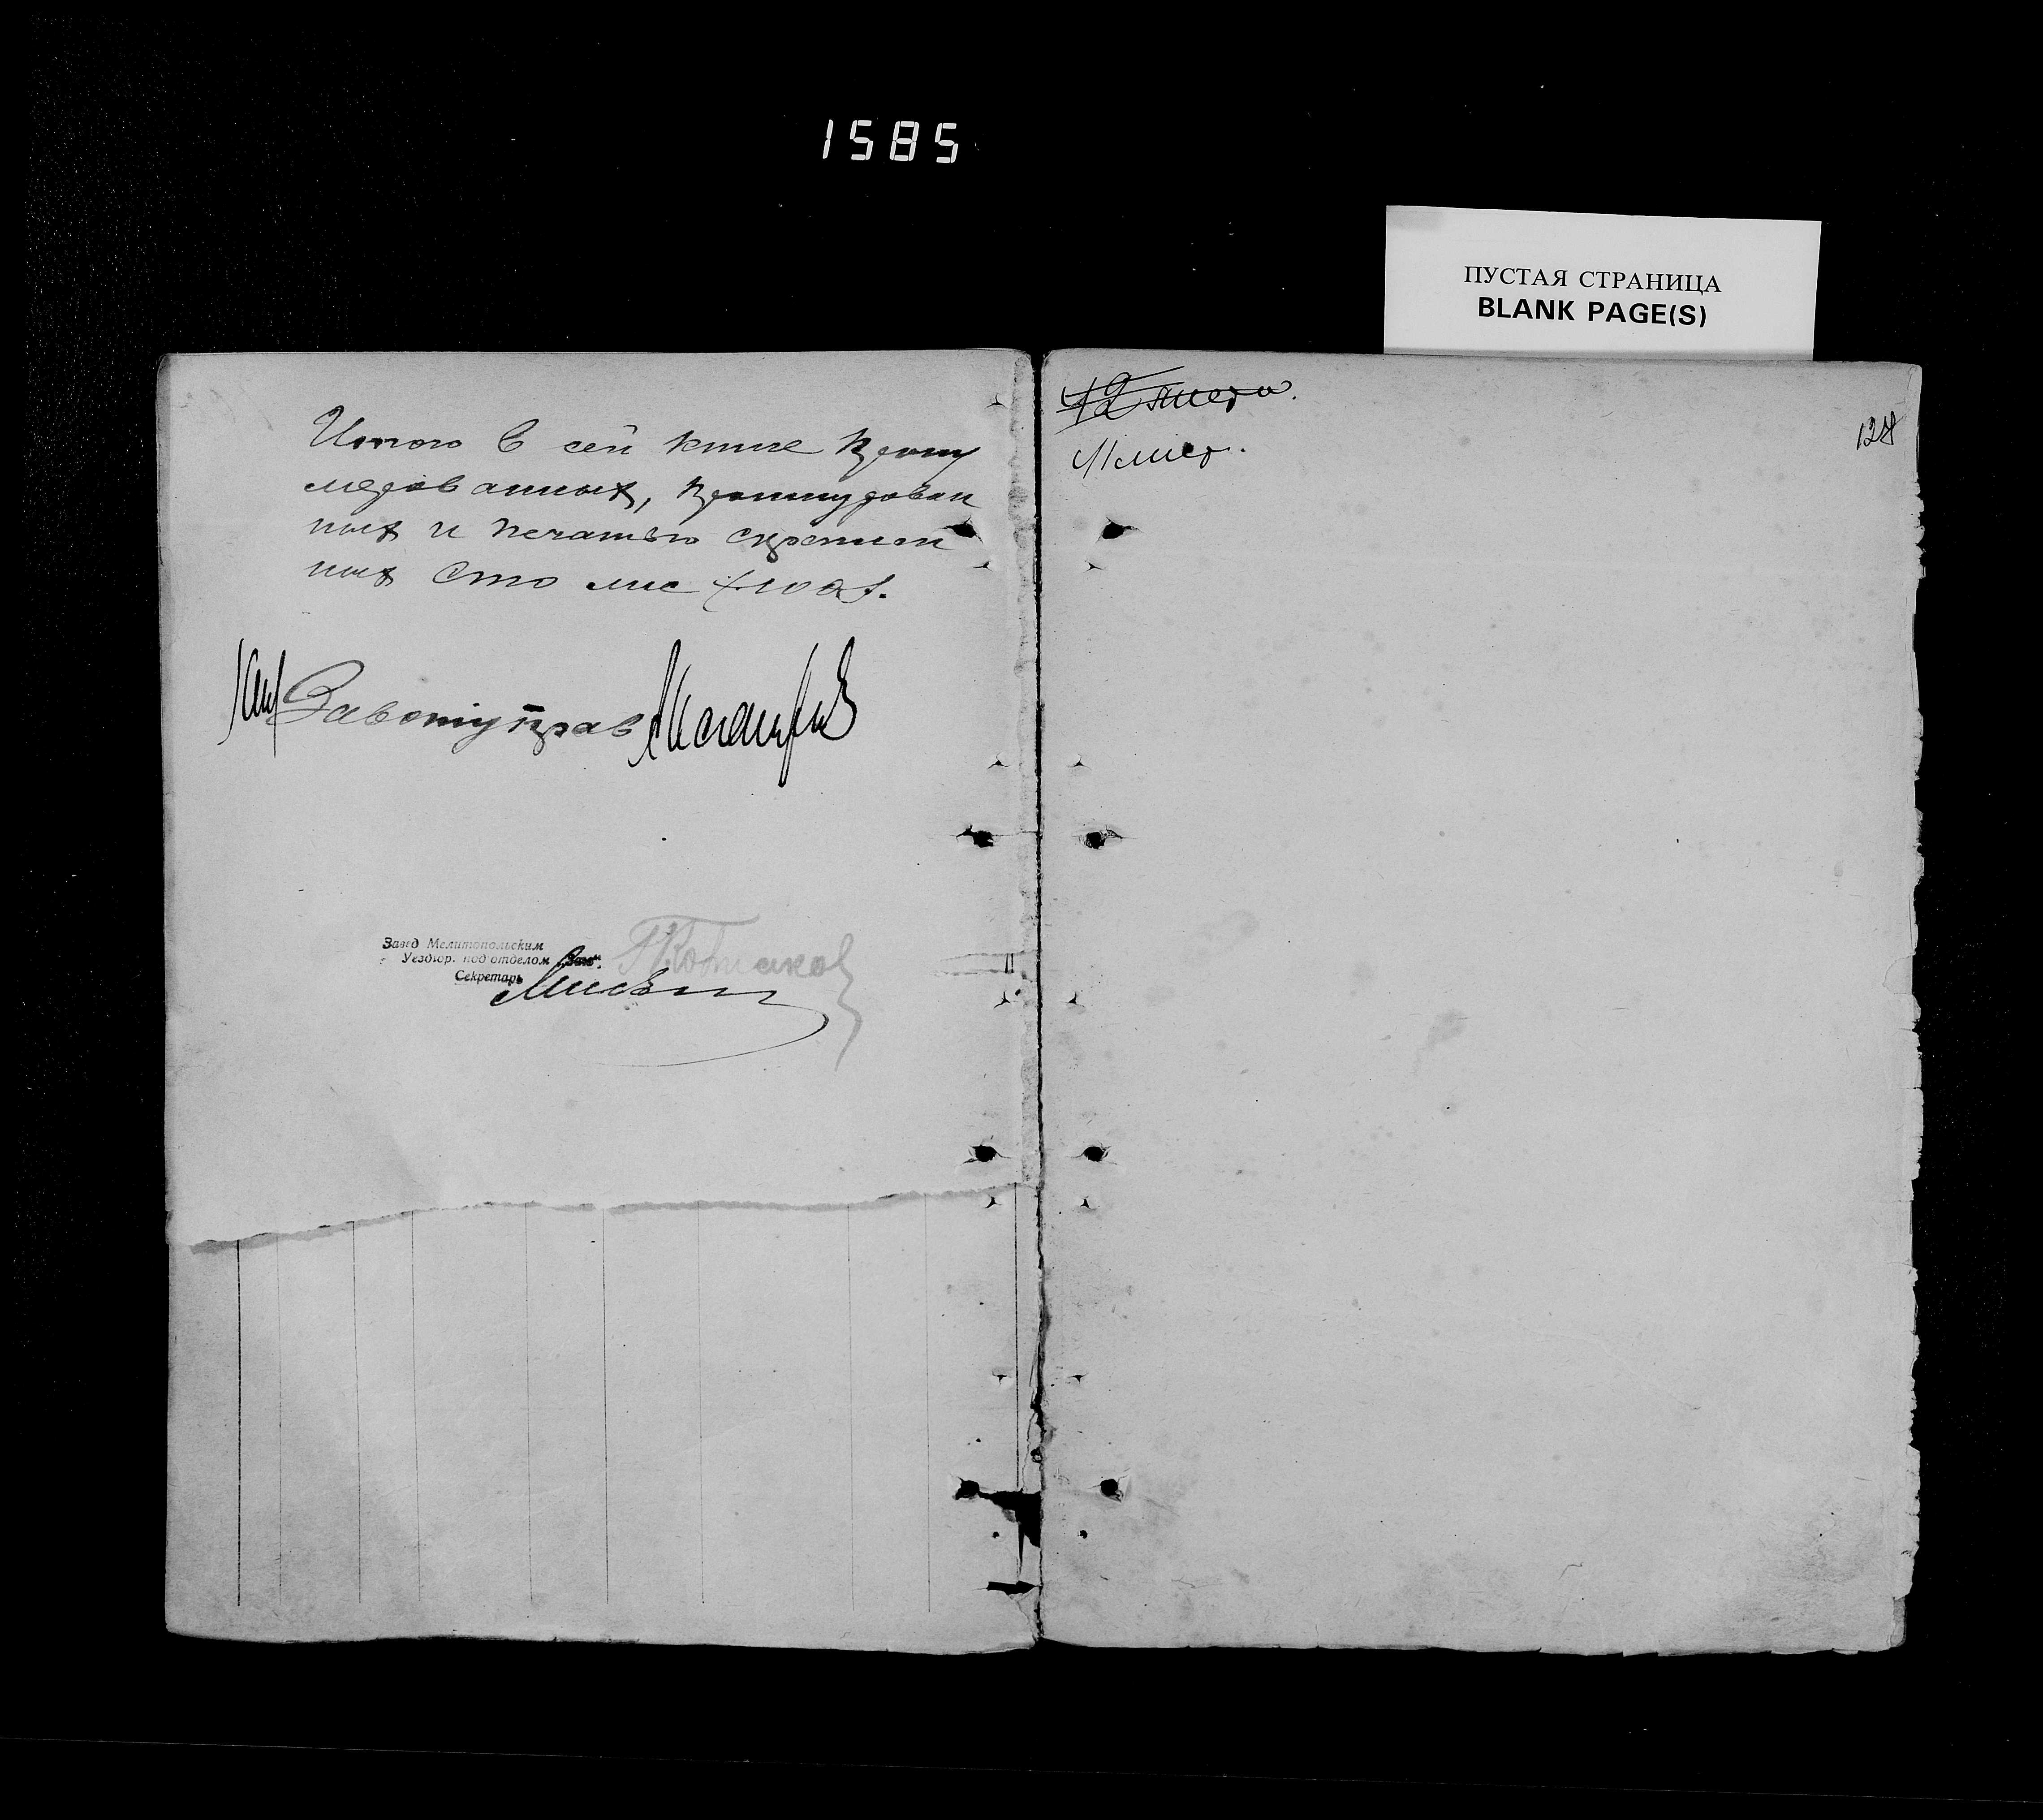 1585
ПУСТАЯ СТРАНИЦА
BLANK PAGE(S)
Итого в сей книге прону
мерованных, прошнурован
ных и печатью скреплен
ных Сто лис (100).
Завотуправ
Завед Мелитопольским
Уездюр. подотделом „Загс“.
Секретарь
42 листа.
41 лист.
124